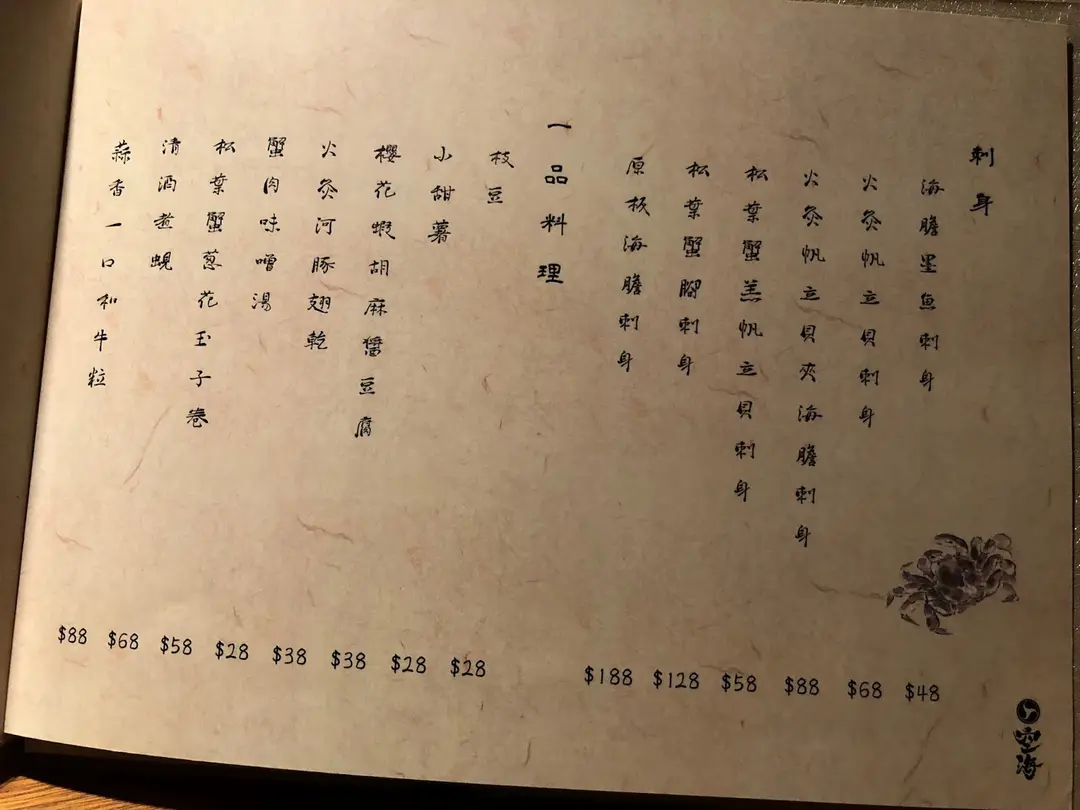 刺身
海膽墨魚刺身 $48
火灸帆立貝刺身 $68
火灸帆立貝夾海膽刺身 $88
松葉蟹羔帆立貝刺身 $58
松葉蟹腳刺身 $128
原板海膽刺身 $188
一品料理
枝豆 $28
小甜薯 $28
櫻花蝦胡麻醬豆腐 $38
火灸河豚翅乾 $38
蟹肉味噌湯 $28
松葉蟹蔥花玉子卷 $58
清酒煮蜆 $68
蒜香一口和牛粒 $88
空海